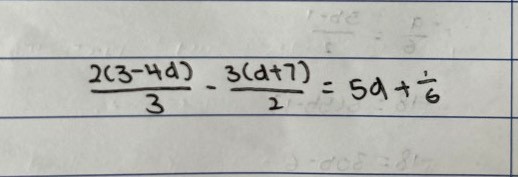 2(3-4d)/3 - 3(d+7)/2 = 5d + 1/6